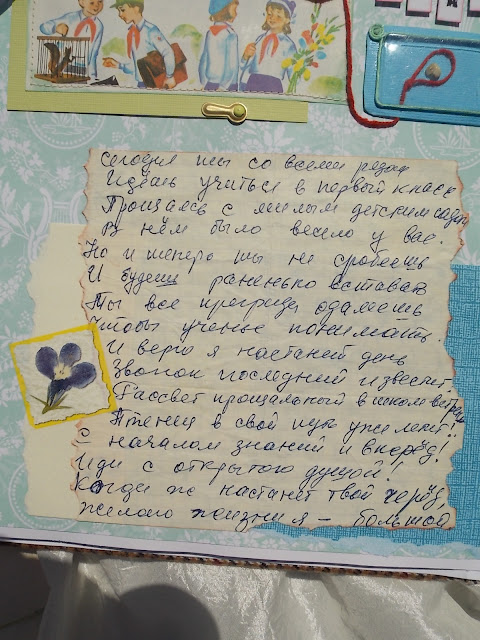 Сегодня ты со всеми рядом
Идёшь учиться в первый класс
Прощаясь с милым детским садом
В нём было весело у вас.
Но и теперь ты не сробеешь
И будешь раненько вставать
Ты все преграды одолеешь
Чтобы ученье понимать.
И верю я настанет день
Звонок последний известит
Рассвет прощальный в школе встретишь
Птенец в свой путь уже летит!
С началом знаний и вперёд!
Иди с открытою душой!
Когда ж настанет твой черёд,
Желаю жизни я - большой